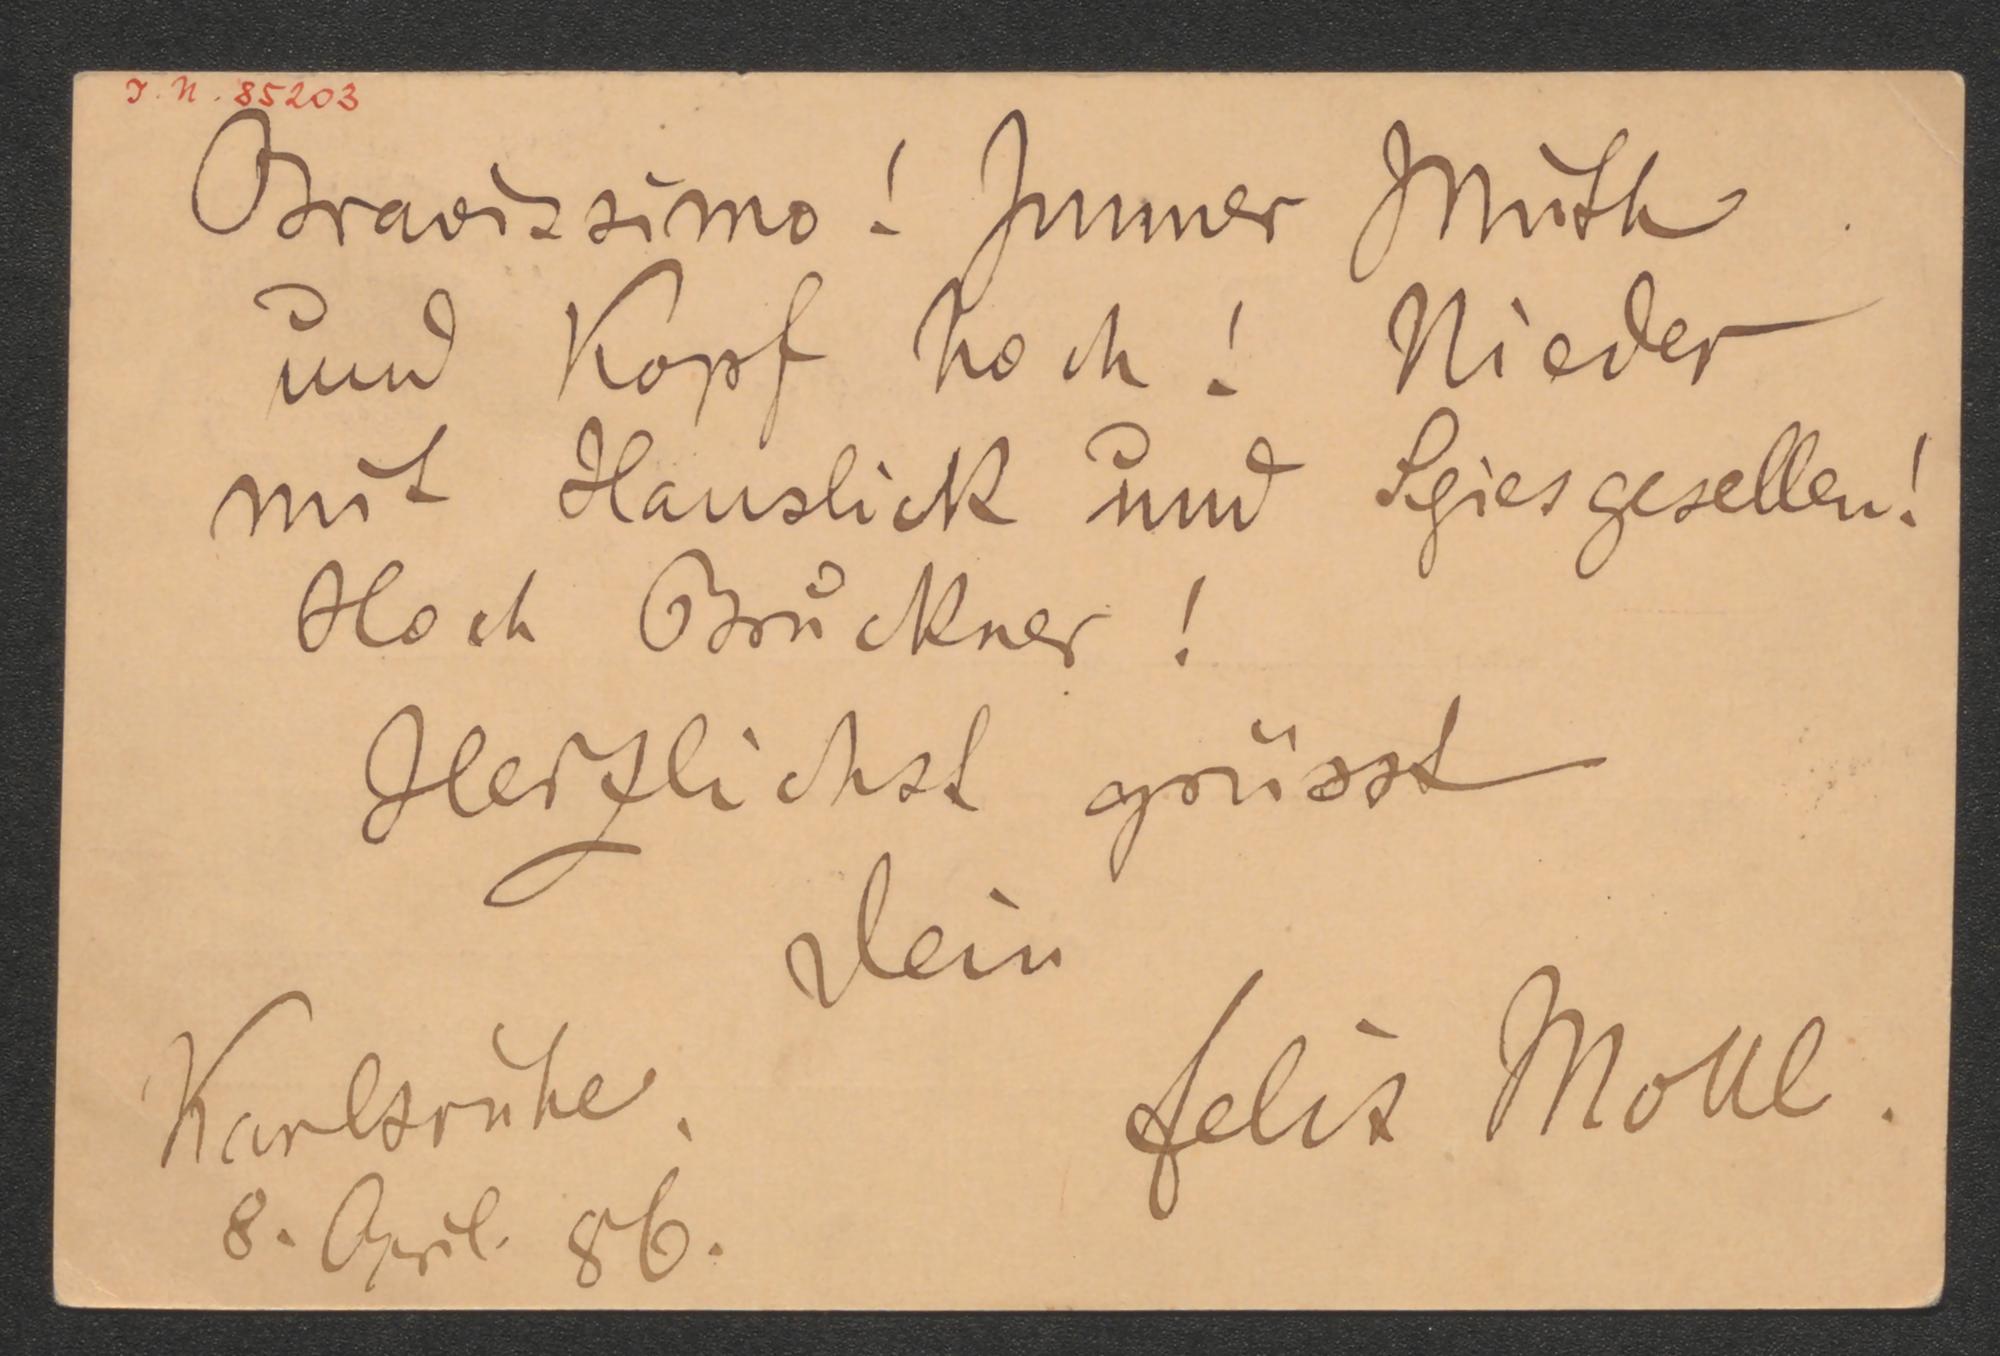 I. N. 85203
Bravissimo! Immer Muth
und Kopf hoch! Nieder
mit Hanslick und Spiesgesellen!
Hoch Bruckner!
Herzlichst grüsst
Dein
Felix Mottl.
Karlsruhe.
8. April. 86.